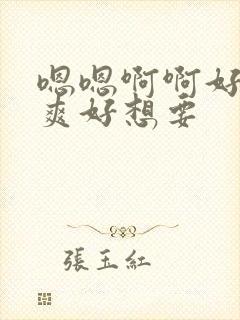 嗯嗯啊啊好
爽好想要
張玉紅